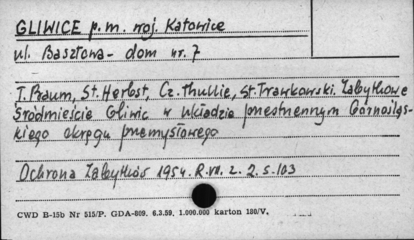 GLIWICE p.m. woj. Katowice
ul. Basztowa - dom nr. 7
T. Baum, St. Herbst, Cz. Thullie, St. Trawkowski. Zabytkowe
Śródmieście Gliwic w układzie przestrzennym Górnośląs-
kiego okręgu przemysłowego
Ochrona Zabytków 1954. R. VII. z. 2. s. 103
CWD B-15b Nr 515/P. GDA-809. 6.3.59. 1.000.000 karton 180/V.